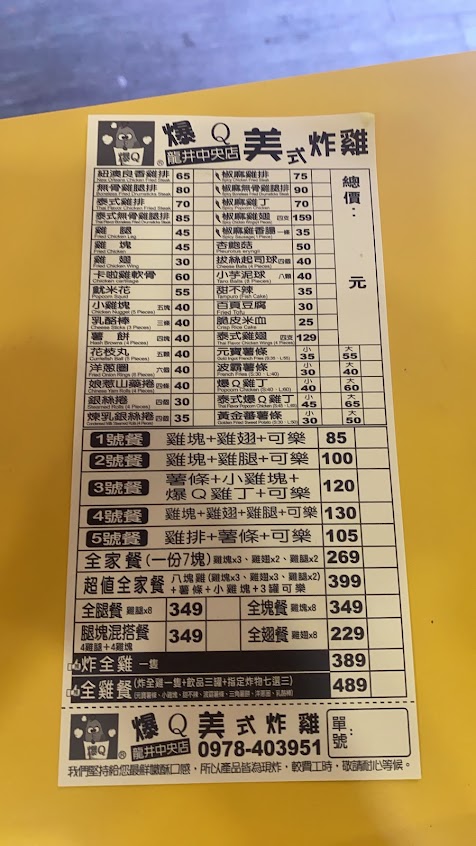 爆Q美式炸雞
龍井中央店
爆Q
®
紐澳良香雞排 65
New Orleans Chicken Fried Steak
無骨雞腿排 80
Boneless Fried Drumsticks Steak
泰式雞排 70
Thai Flavor Chicken Fried Steak
泰式無骨雞腿排 85
雞腿 45
Fried Chicken Leg
雞塊 45
Fried Chicken
雞翅 30
Fried Chicken Wing
卡啦雞軟骨 60
Chicken cartilage
魷米花 55
Popcorn Squid
小雞塊 五塊 40
Chicken Nugget (5 Pieces)
乳酪棒 三條 40
Cheese Sticks (3 Pieces)
薯餅 四片 40
Hash Browns (4 Pieces)
花枝丸 五顆 40
Cuttlefish Ball (5 Pieces)
洋蔥圈 六個 40
Fried Onion Rings (6 Pieces)
娘惹山藥捲 四條 40
Chinese Yam Rolls (4 Pieces)
銀絲捲 四個 30
Steamed Rolls (4 Pieces)
煉乳銀絲捲 四個 35
椒麻雞排 75
Spicy Chicken Fried Steak
椒麻無骨雞腿排 90
椒麻雞丁 70
Spicy Popcorn Chicken
椒麻雞翅 四支 159
椒麻雞香腸 一條 35
杏鮑菇 50
Pleurotus eryngii
拔絲起司球 四個 40
Cheese Balls (4 Pieces)
小芋泥球 八顆 40
Taro Balls (8 Pieces)
甜不辣 35
Tampura (Fish Cake)
百頁豆腐 30
Fried Tofu
脆皮米血 25
Crisp Rice Cake
泰式雞翅 四支 129
Thai Flavor Chicken Wings (4 Pieces)
元寶薯條 小35 大55
波霸薯條 小30 大40
French Fries (S:30、L:40)
爆Q雞丁 小40 大60
Popcorn Chicken (S:40、L:60)
泰式爆Q雞丁 小45 大65
黃金番薯條 小30 大50
總價: 元
1號餐 雞塊+雞翅+可樂 85
2號餐 雞塊+雞腿+可樂 100
3號餐 薯條+小雞塊+爆Q雞丁+可樂 120
4號餐 雞塊+雞翅+雞腿+可樂 130
5號餐 雞排+薯條+可樂 105
全家餐(一份7塊) 雞塊x3、雞翅x2、雞腿x2 269
超值全家餐 八塊雞(雞塊x3、雞翅x3、雞腿x2)+薯條+小雞塊+3罐可樂 399
全腿餐 雞腿x8 349 全塊餐 雞塊x8 349
腿塊混搭餐 4雞腿+4雞塊 349 全翅餐 雞翅x8 229
炸全雞 一隻 389
全雞餐 (炸全雞一隻+飲品三罐+指定炸物七選三) 489
(元寶薯條、小雞塊、甜不辣、波霸薯條、三角薯餅、洋蔥圈、乳酪棒)
爆Q美式炸雞
爆Q
®
龍井中央店 0978-403951
單號:
我們堅持給您最鮮嫩酥口感，所以產品皆為現炸，較費工時，敬請耐心等候。